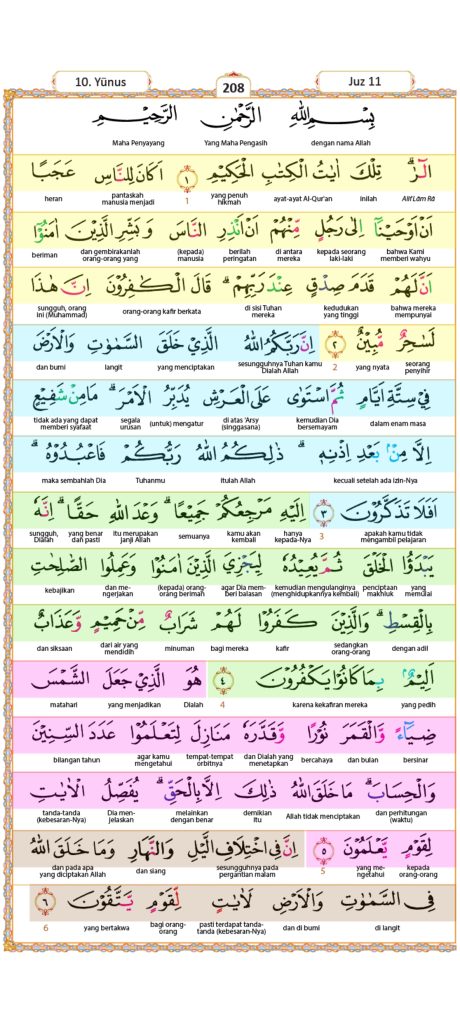 10. Yūnus
208
Juz 11
بِسْمِ اللّٰهِ الرَّحْمٰنِ الرَّحِيْمِ
dengan nama Allah Yang Maha Pengasih Maha Penyayang
الۤرٰ ۗ تِلْكَ اٰيٰتُ الْكِتٰبِ الْحَكِيْمِ ١ اَكَانَ لِلنَّاسِ عَجَبًا
Alif Lām Rā inilah ayat-ayat Al-Qur'an yang penuh hikmah 1 pantaskah manusia menjadi heran
اَنْ اَوْحَيْنَآ اِلٰى رَجُلٍ مِّنْهُمْ اَنْ اَنْذِرِ النَّاسَ وَبَشِّرِ الَّذِيْنَ اٰمَنُوْٓا
bahwa Kami memberi wahyu kepada seorang laki-laki di antara mereka berilah peringatan (kepada) manusia dan gembirakanlah orang-orang yang beriman
اَنَّ لَهُمْ قَدَمَ صِدْقٍ عِنْدَ رَبِّهِمْ ۗ قَالَ الْكٰفِرُوْنَ اِنَّ هٰذَا
bahwa mereka mempunyai kedudukan yang tinggi di sisi Tuhan mereka orang-orang kafir berkata sungguh, orang ini (Muhammad)
لَسٰحِرٌ مُّبِيْنٌ ٢ اِنَّ رَبَّكُمُ اللّٰهُ الَّذِيْ خَلَقَ السَّمٰوٰتِ وَالْاَرْضَ
seorang penyihir yang nyata 2 sesungguhnya Tuhan kamu Dialah Allah yang menciptakan langit dan bumi
فِيْ سِتَّةِ اَيَّامٍ ثُمَّ اسْتَوٰى عَلَى الْعَرْشِ يُدَبِّرُ الْاَمْرَ ۗ مَا مِنْ شَفِيْعٍ
dalam enam masa kemudian Dia bersemayam di atas 'Arsy (singgasana) (untuk) mengatur segala urusan tidak ada yang dapat memberi syafaat
اِلَّا مِنْۢ بَعْدِ اِذْنِهٖ ۗ ذٰلِكُمُ اللّٰهُ رَبُّكُمْ فَاعْبُدُوْهُ ۗ
kecuali setelah ada izin-Nya itulah Allah Tuhanmu maka sembahlah Dia
اَفَلَا تَذَكَّرُوْنَ ٣ اِلَيْهِ مَرْجِعُكُمْ جَمِيْعًا ۗ وَعْدَ اللّٰهِ حَقًّا ۗ اِنَّهٗ
apakah kamu tidak mengambil pelajaran 3 hanya kepada-Nya kamu akan kembali semuanya itu merupakan janji Allah yang benar dan pasti sungguh, Dialah
يَبْدَؤُا الْخَلْقَ ثُمَّ يُعِيْدُهٗ لِيَجْزِيَ الَّذِيْنَ اٰمَنُوْا وَعَمِلُوا الصّٰلِحٰتِ
yang memulai penciptaan makhluk kemudian mengulanginya (menghidupkannya kembali) agar Dia memberi balasan (kepada) orang-orang berimah dan mengerjakan kebajikan
بِالْقِسْطِ ۗ وَالَّذِيْنَ كَفَرُوْا لَهُمْ شَرَابٌ مِّنْ حَمِيْمٍ وَّعَذَابٌ
dengan adil sedangkan orang-orang kafir bagi mereka minuman dari air yang mendidih dan siksaan
اَلِيْمٌۢ بِمَا كَانُوْا يَكْفُرُوْنَ ٤ هُوَ الَّذِيْ جَعَلَ الشَّمْسَ
yang pedih karena kekafiran mereka 4 Dialah yang menjadikan matahari
ضِيَاۤءً وَّالْقَمَرَ نُوْرًا وَّقَدَّرَهٗ مَنَازِلَ لِتَعْلَمُوْا عَدَدَ السِّنِيْنَ
bersinar dan bulan bercahaya dan Dialah yang menetapkan tempat-tempat orbitnya agar kamu mengetahui bilangan tahun
وَالْحِسَابَ ۗ مَا خَلَقَ اللّٰهُ ذٰلِكَ اِلَّا بِالْحَقِّ ۗ يُفَصِّلُ الْاٰيٰتِ
dan perhitungan (waktu) Allah tidak menciptakan demikian itu melainkan dengan benar Dia menjelaskan tanda-tanda (kebesaran-Nya)
لِقَوْمٍ يَّعْلَمُوْنَ ٥ اِنَّ فِى اخْتِلَافِ الَّيْلِ وَالنَّهَارِ وَمَا خَلَقَ اللّٰهُ
kepada orang-orang yang mengetahui 5 sesungguhnya pada pergantian malam dan siang dan pada apa yang diciptakan Allah
فِى السَّمٰوٰتِ وَالْاَرْضِ لَاٰيٰتٍ لِّقَوْمٍ يَّتَّقُوْنَ ٦
di langit dan di bumi pasti terdapat tanda-tanda (kebesaran-Nya) bagi orang-orang yang bertakwa 6